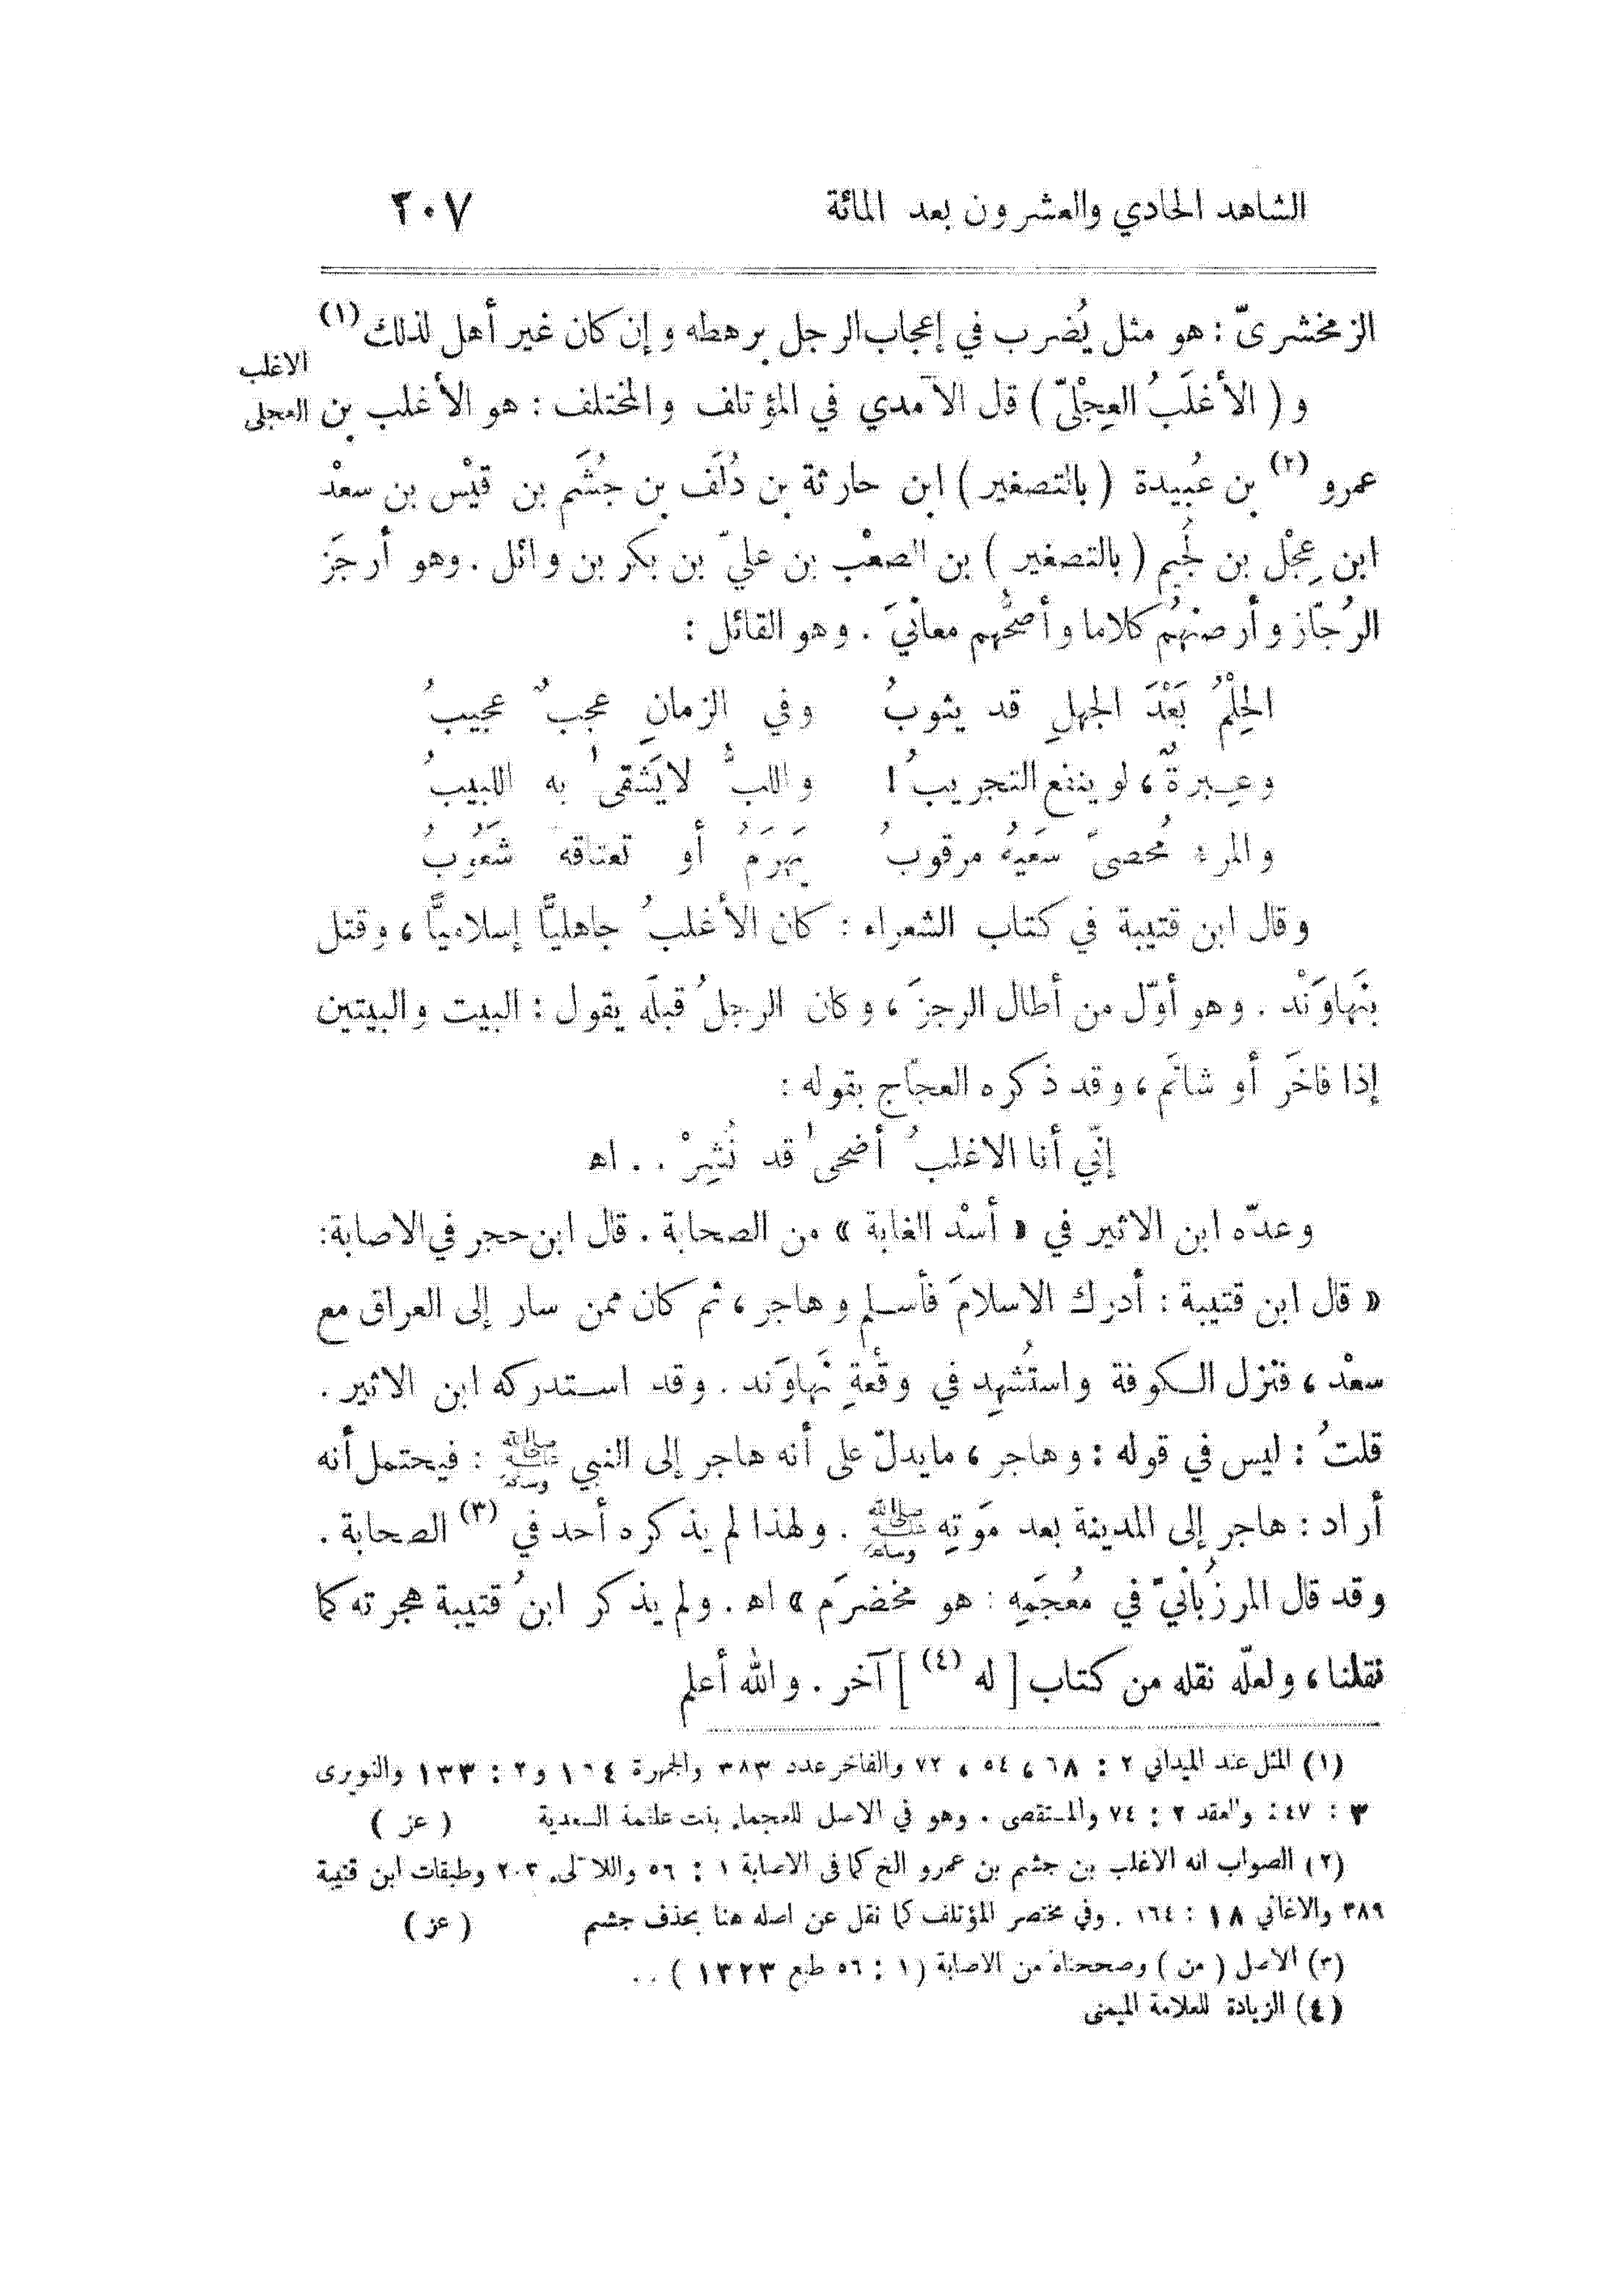 الشاهد الحادي والعشرون بعد المائة ٢٠٧
الزمخشرىّ : هو مثل يُضرب في إعجاب الرجل برهطه وإن كان غير أهل لذلك (١)
الاغلب
العجلى
و ( الأغلَبُ العِجْلىّ ) قل الآمدي في المؤتلف والمختلف : هو الأغلب بن
عمرو (٢) بن عُبيدة ( بالتصغير ) ابن حارثة بن دُلَف بن جُشَم بن قيْس بن سعْد
ابن عِجْل بن لُجيم ( بالتصغير ) بن الصعْب بن عليّ بن بكر بن وائل . وهو أرجَز
الرُجّاز وأرصنُهم كلاما وأصحُّهم معانيَ . وهو القائل :
الحِلْمُ بَعْدَ الجهلِ قد يثوبُ وفي الزمانِ عجبٌ عجيبُ
وعبرةٌ ، لو ينفع التجريبُ ! واللبُّ لا يَشقىٰ به اللبيبُ
والمرء مُحصىً سَعيُهُ مرقوبُ يَهرَمُ أو تعتاقه شَعُوبُ
وقال ابن قتيبة في كتاب الشعراء : كان الأغلبُ جاهليًّا إسلاميًّا ، وقتل
بنَهاوَنْد . وهو أوّل من أطال الرجزَ ، وكان الرجلُ قبلَه يقول : البيت والبيتين
إذا فاخَرَ أو شاتَم ، وقد ذكره العجّاج بقوله :
إنّي أنا الاغلبُ أضحىٰ قد نُشِرْ . . اه
وعدّه ابن الاثير في « أسْد الغابة » من الصحابة . قال ابن حجر في الاصابة :
« قال ابن قتيبة : أدرك الاسلامَ فأسلم وهاجر ، ثم كان ممن سار إلى العراق مع
سعْد ، فنزل الكوفة واستُشهِد في وقْعةِ نَهاوَند . وقد استدركه ابن الاثير .
قلتُ : ليس في قوله : وهاجر ، مايدلّ على أنه هاجر إلى النبي ﷺ : فيحتمل أنه
أراد : هاجر إلى المدينة بعد مَوتِه ﷺ . ولهذا لم يذكره أحد في (٣) الصحابة .
وقد قال المرزُبانيّ في مُعجَمِه : هو مخضرَم » اه . ولم يذكر ابنُ قتيبة هجرته كما
نقلنا ، ولعلّه نقله من كتاب [ له (٤) ] آخر . والله أعلم
(١) المثل عند الميداني ٢ : ٦٨ ، ٥٤ ، ٧٢ والفاخر عدد ٣٨٣ والجمهرة و ٢ : ١٣٣ والنويرى
٣ : والعقد ٢ : ٧٤ والمستقصى . وهو في الاصل للعجماء بنت علقمة السعدية ( عز )
(٢) الصواب انه الاغلب بن جشم بن عمرو الخ كما فى الاصابة ١ : ٥٦ واللآلى. ٢٠٣ وطبقات ابن قتيبة
٣٨٩ والاغاني ١٨ : ١٦٤ . وفي مختصر المؤتلف كما نقل عن اصله هنا بحذف جشم ( عز )
(٣) الاصل ( من ) وصححناه من الاصابة ( ١ : ٥٦ طبع ١٣٢٣ ) . .
(٤) الزيادة للعلامة الميمنى